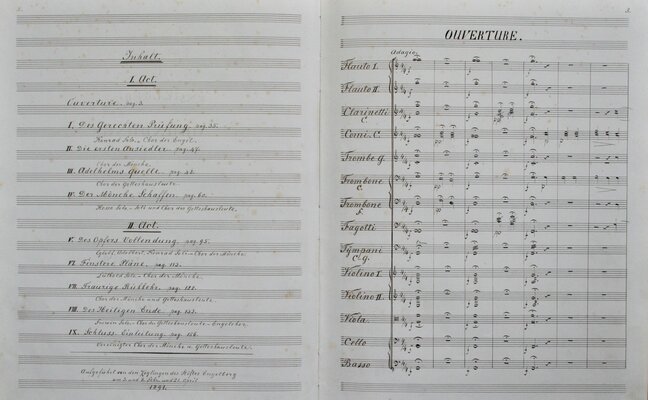 Inhalt.
I. Act.
Ouverture. pag. 3.
I. Des Gerechten Prüfung. pag. 35.
Konrad Solo - Chor der Engel.
II. Die ersten Ansiedler. pag. 47.
Chor der Mönche.
III. Adelhelms Quelle. pag.
Chor der Gotteshausleute.
IV. Der Mönche Schaffen. pag. 60.
Solo - Soli und Chor der Gotteshausleute.
II. Act.
V. Des Opfers Vollendung. pag. 95.
Adelbert, Konrad Soli - Chor der Mönche.
VI. Finstere Pläne. pag. 113.
Luitheld Solo - Chor der Mönche.
VII. Traurige Rückkehr. pag. 122.
Chor der Mönche und Gotteshausleute.
VIII. Des Heiligen Ende. pag.
Frowin Solo - Chor der Gotteshausleute - Engelchor.
IX. Schluss. Einleitung. pag.
Vereinigter Chor der Mönche u. Gotteshausleute.
Aufgeführt von den Zöglingen des Stiftes Engelberg
1891.
3.
OUVERTURE.
Adagio.
Flauto I.
Flauto II.
Clarinetti C.
Corni. C.
Trombe G.
Trombone C.
Trombone F.
Fagotti
Tympani C. G.
Violino I.
Violino II.
Viola.
Cello
Basso